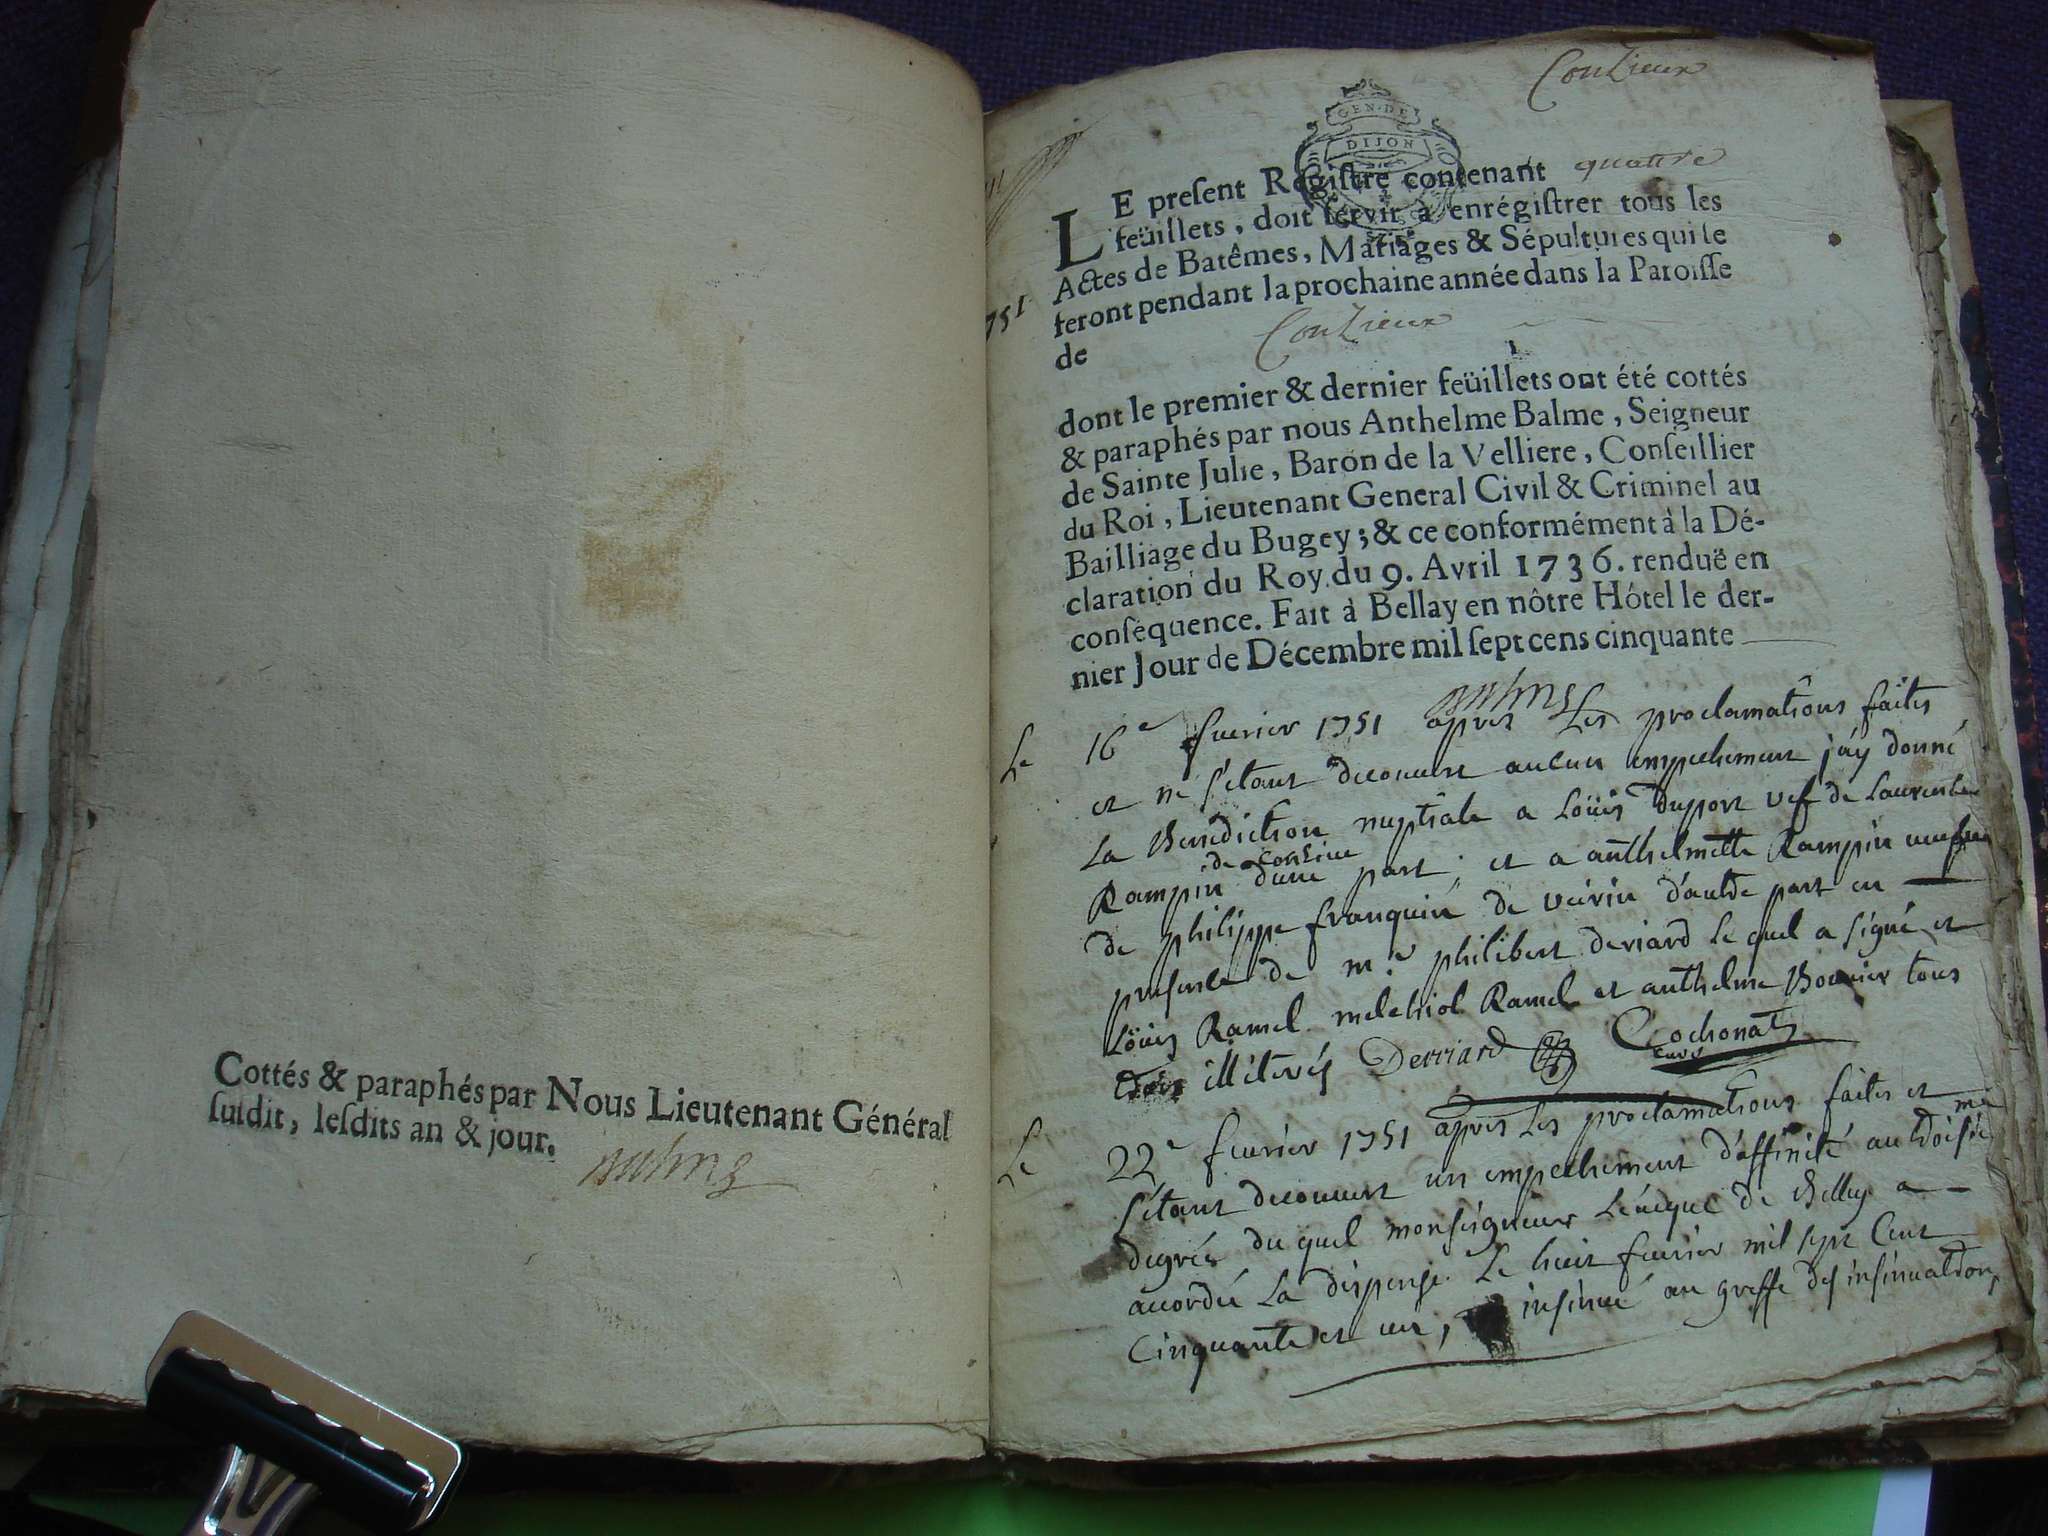 Cottés & paraphés par Nous Lieutenant Général
ſuſdit, leſdits an & jour.
Conzieux
GEN·DE
DIJON
LE preſent Regiſtre contenant quattre
feüillets, doit ſervir à enrégiſtrer tous les
Actes de Batêmes, Mariages & Sépultures qui ſe
feront pendant la prochaine année dans la Paroiſſe
de Conzieux
1751
dont le premier & dernier feüillets ont été cottés
& paraphés par nous Anthelme Balme, Seigneur
de Sainte Julie, Baron de la Velliere, Conſeillier
du Roi, Lieutenant General Civil & Criminel au
Bailliage du Bugey; & ce conformément à la Dé-
claration du Roy du 9. Avril 1736. renduë en
conſéquence. Fait à Bellay en nôtre Hôtel le der-
nier Jour de Décembre mil ſept cens cinquante
Le 16e feurier 1751 apres Les proclamations faites
et ne s'étant decouvert aucun empechement j'ay donné
La Benediction nuptiale a Loüis Duport vef de Laurence
de
Rampin d'une part; et a anthelmette Rampin
de philippe franquin de veirin d'autre part en
presence de me philibert derriard le quel a signé et
Loüis Ramel melchiol Ramel et anthelme Bouvier tous
illiterés Derriard Cochonat
curé
Le 22e feurier 1751 apres Les proclamations faites et
s'étant decouvert un empechement d'affinité au troisie
degrés du quel monseigneur L'éveque de Belley a
accordé La dispense Le huit feurier mil sept Cent
Cinquante et un, insinué au greffe des insinuations